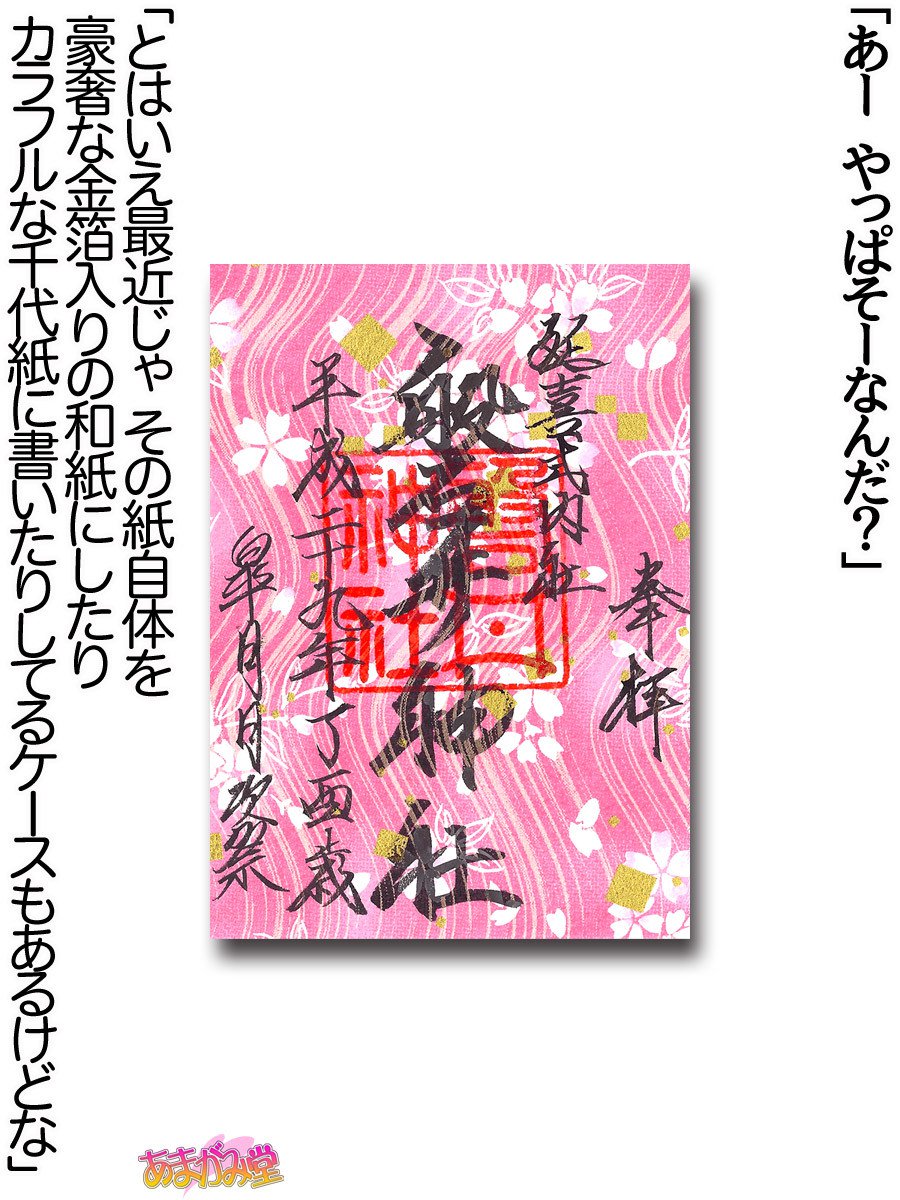 「あー　やっぱそーなんだ？」
奉拝
延喜式内社
般若神社
平成二十九年丁酉歳
皐月月次祭
「とはいえ最近じゃ その紙自体を
豪奢な金箔入りの和紙にしたり
カラフルな千代紙に書いたりしてるケースもあるけどな」
あまがみ堂